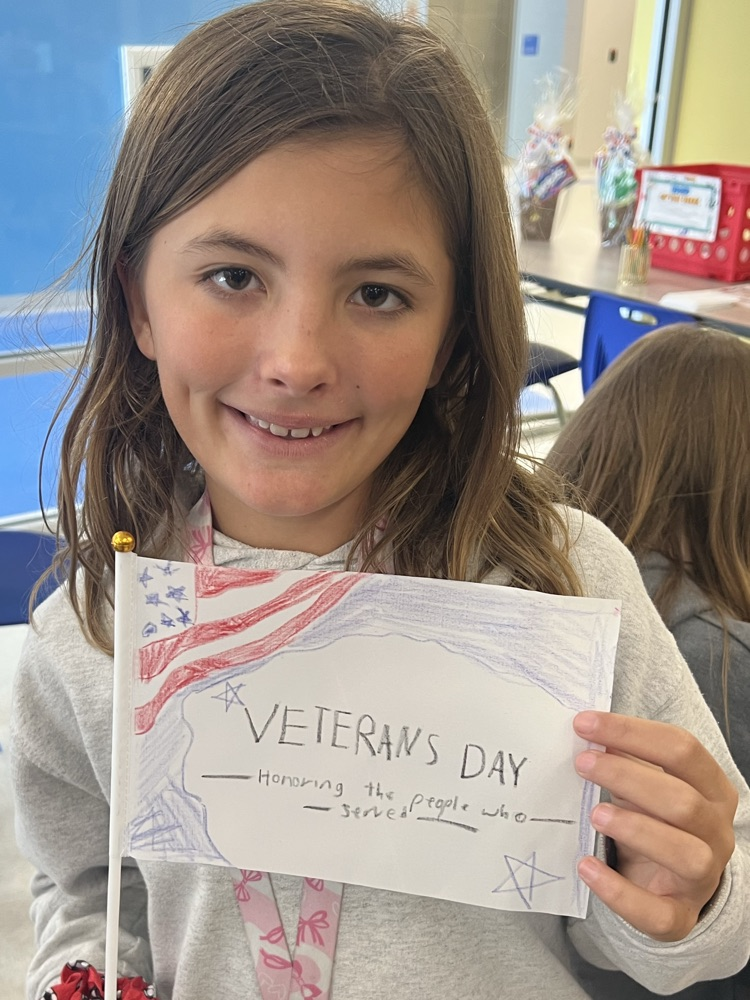 VETERANS DAY
Honoring the people who
served